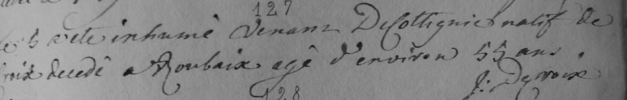 127
le 5 a ete inhumé Venant Decottignie natif de
croix decedé a Roubaix agé d'environ 55 ans.
J: Deroix
128